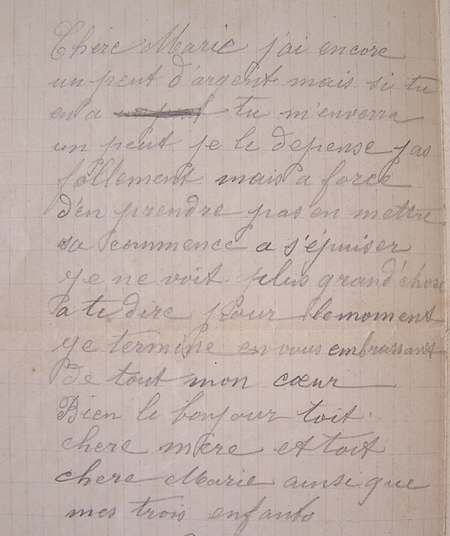 Chere Marie j'ai encore
un peut d'argent mais si tu
en a tu m'enverra
un peut je le depense pas
follement mais a force
d'en prendre pas en mettre
sa commence a s'épuiser
je ne voit plus grand'chose
a te dire pour lemoment
je termine en vous embrassant
de tout mon cœur
Bien le bonjour toit
chere mère et toit
chere Marie ainsi que
mes trois enfants